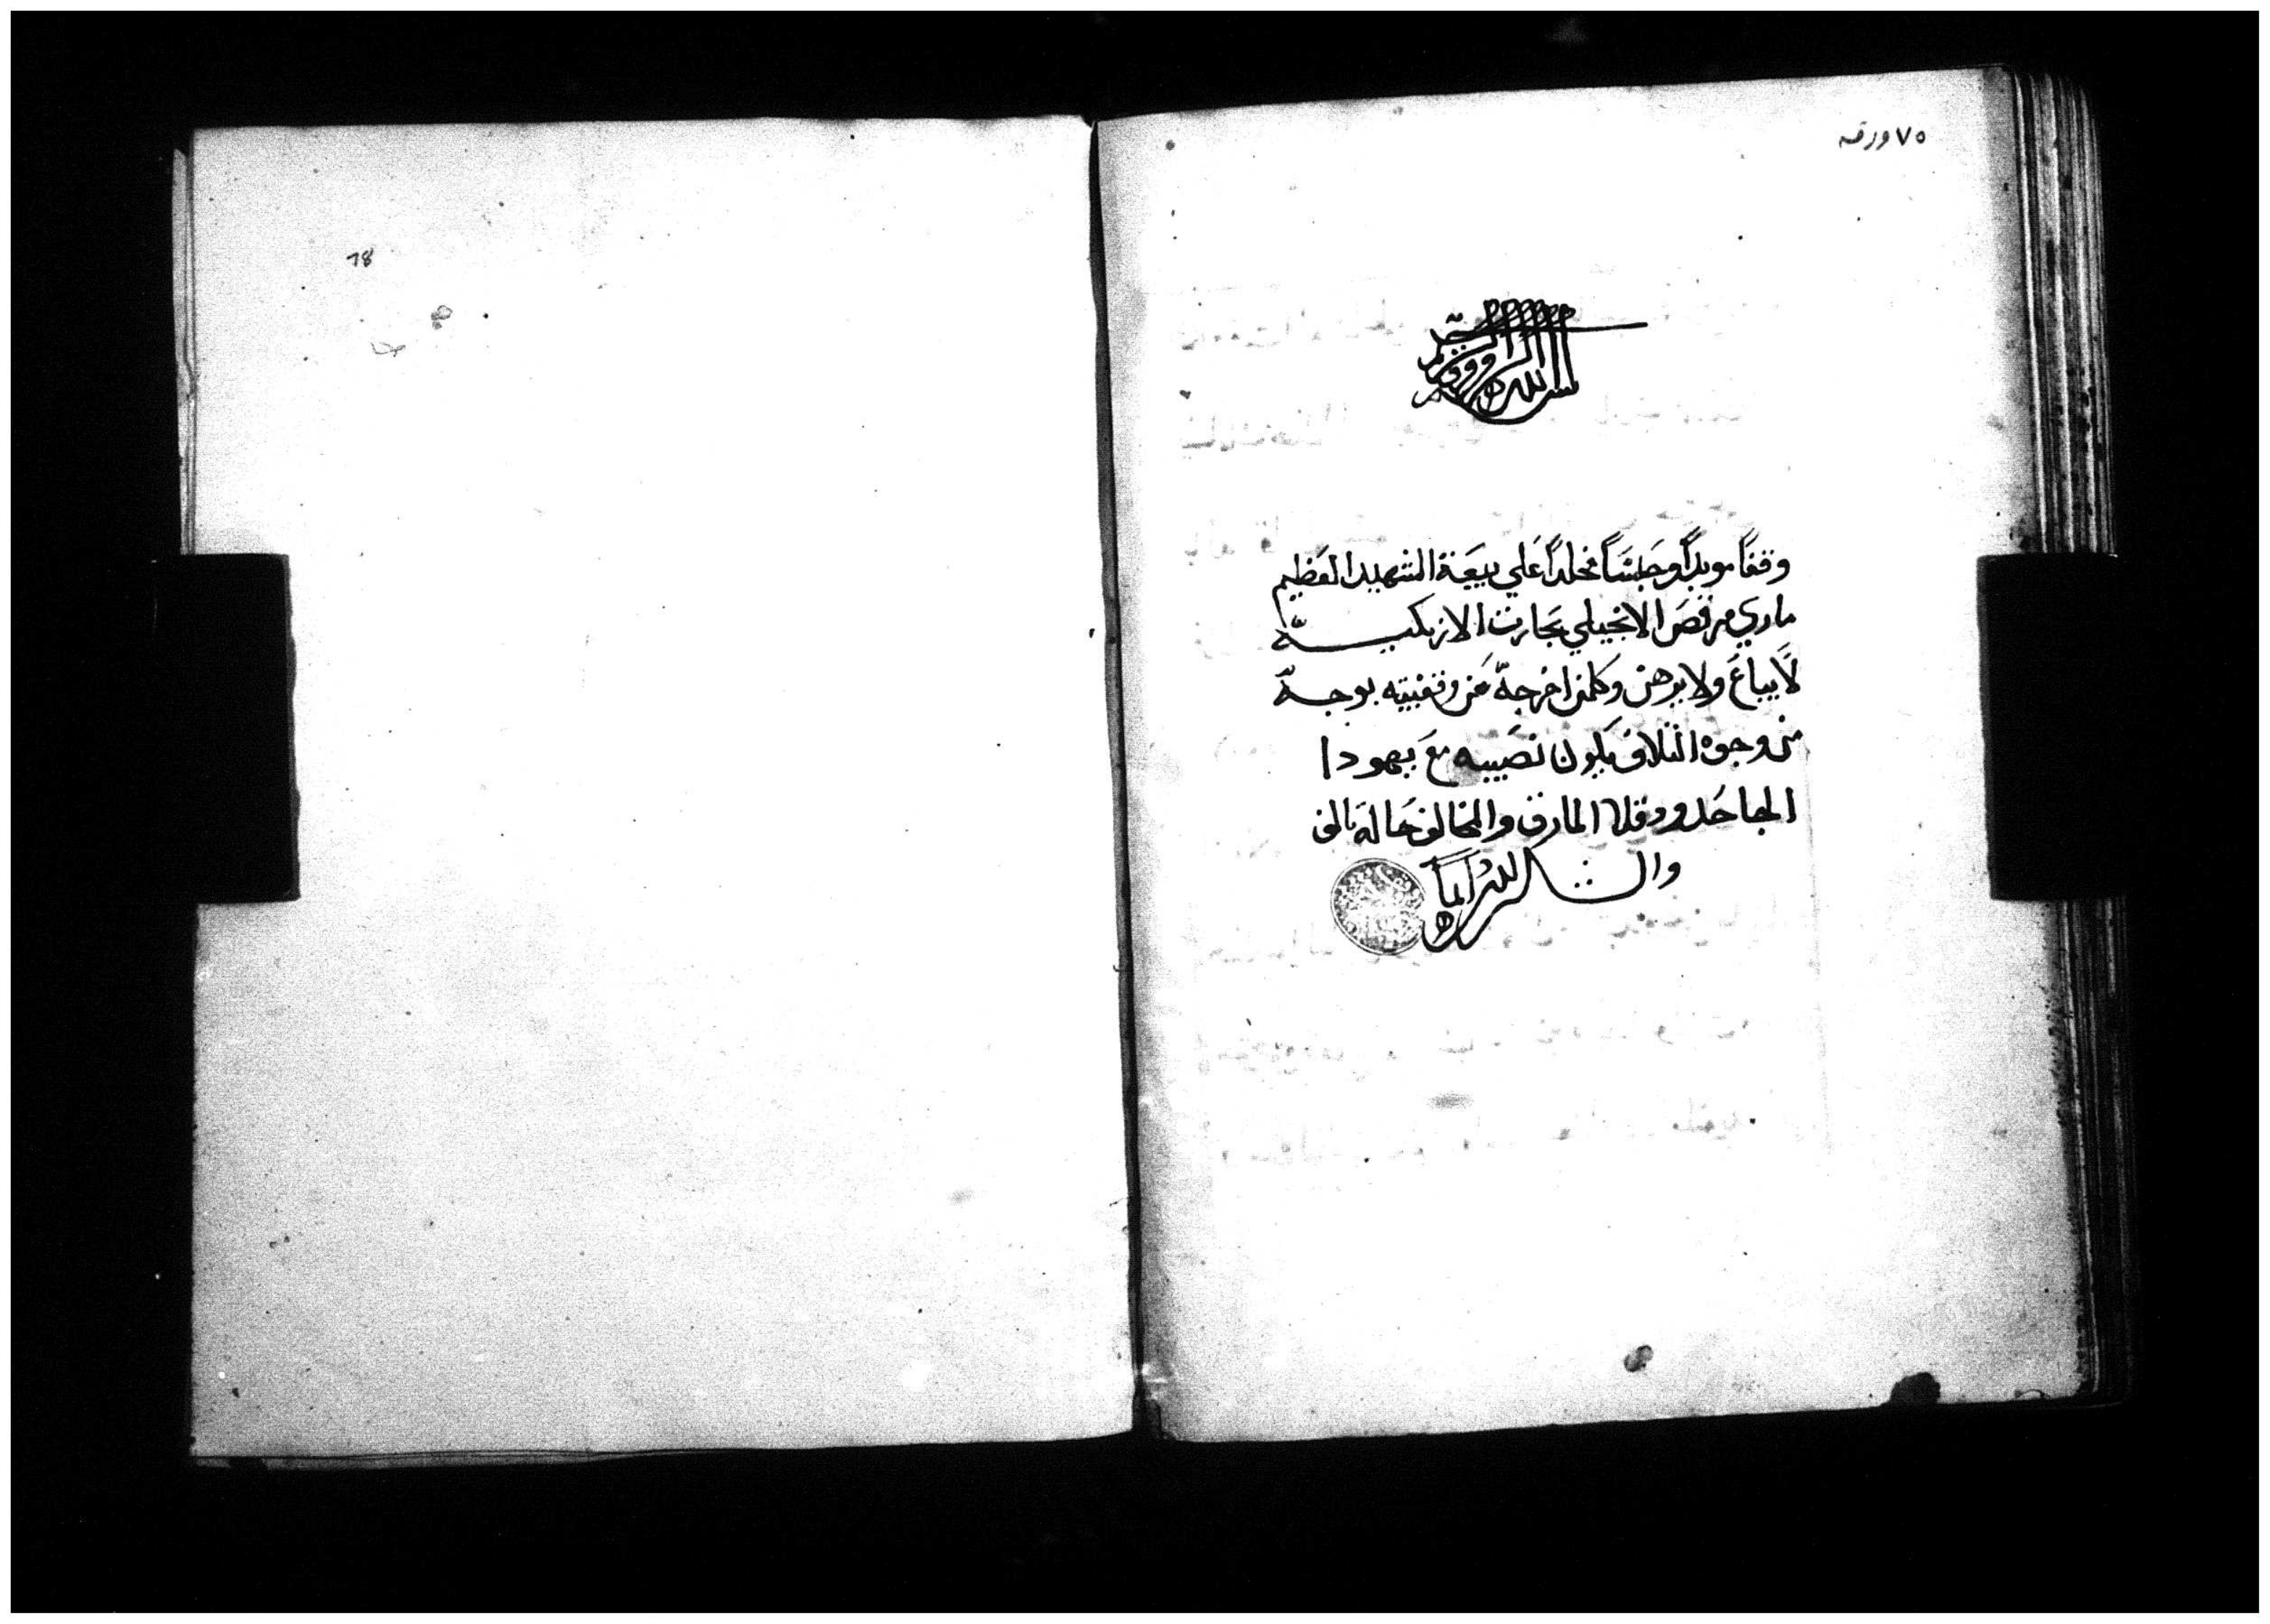 ٧٥ ورقه
18
بسم الله الرووف الرحيم
وقفاً موبداً وحبساً مخلداً علي بيعة الشهيد العظيم
ماري مرقص الانجيلي بحارت الازبكيه
لا يباع ولا يرهن وكلمن اخرجه عن وقفيته بوجه
من وجوه التلاف يكون نصيبه مع يهودا
الجاحد ودقلا المارق والمخالف حاله تالف
والشكر لله دايماً